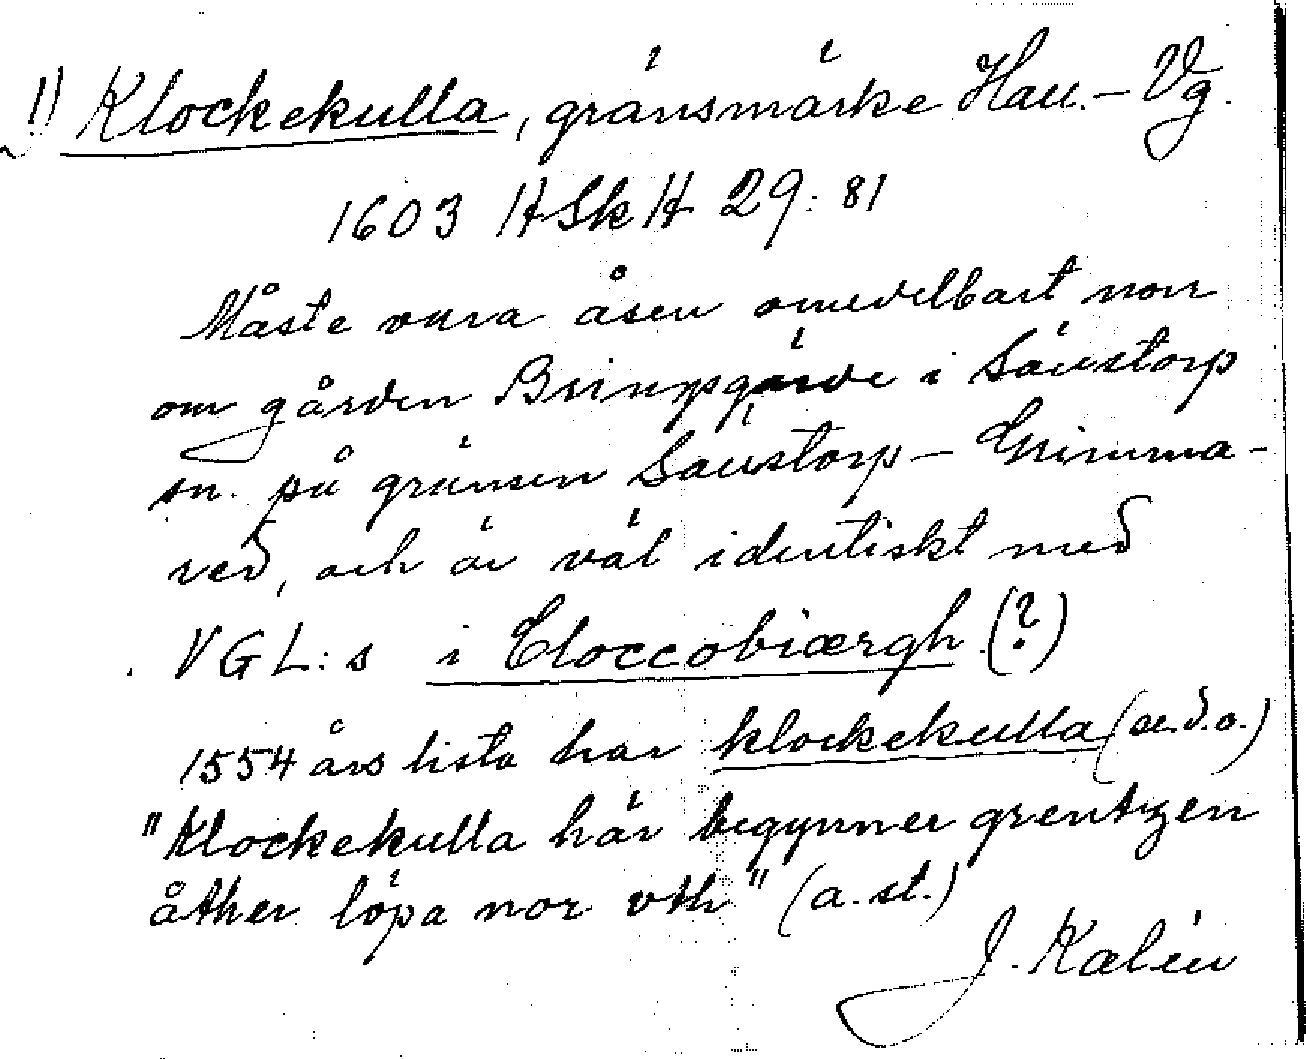 1) Klockekulla, gränsmärke Hall.- Vg.
1603 HSkH 29: 81
Måste vara åsen omedelbart norr
om gården Brinpgärde i Sävstorp
sn. på gränsen Sävstorp - Grimma-
red, och är väl identiskt med
VGL:s i Cloccobiærgh (?)
1554 års lista har klockekulla (a.d.o.)
"Klockekulla här begynner grentzen
åther löpa nor vth" (a. st.)
J. Kalén